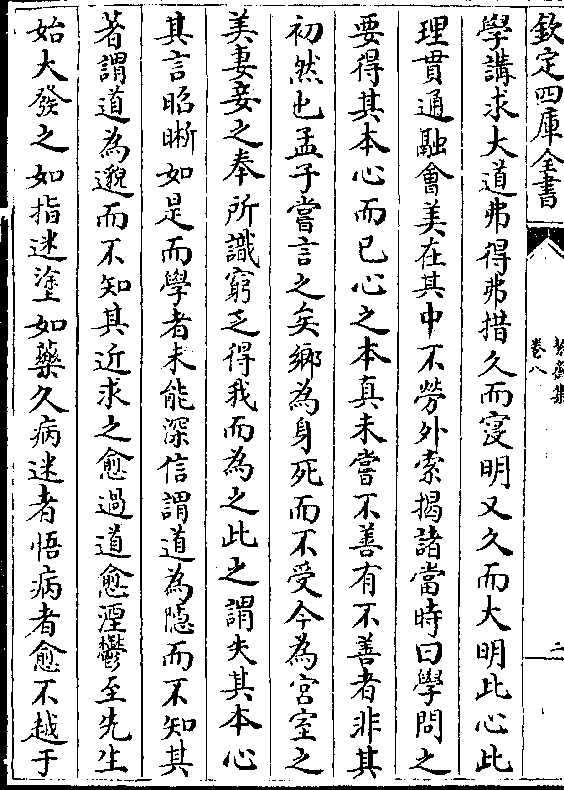 欽定四庫全書
卷八
二
學講求大道弗得弗措久而寖明又久而大明此心此
理貫通融會美在其中不勞外索揭諸當時曰學問之
要得其本心而已心之本真未嘗不善有不善者非其
初然也孟子嘗言之矣鄉為身死而不受今為宮室之
美妻妾之奉所識窮乏得我而為之此之謂失其本心
其言昭晰如是而學者未能深信謂道為隱而不知其
著謂道為邈而不知其近求之愈過道愈湮鬱至先生
始大發之如指迷塗如藥久病迷者悟病者愈不越于